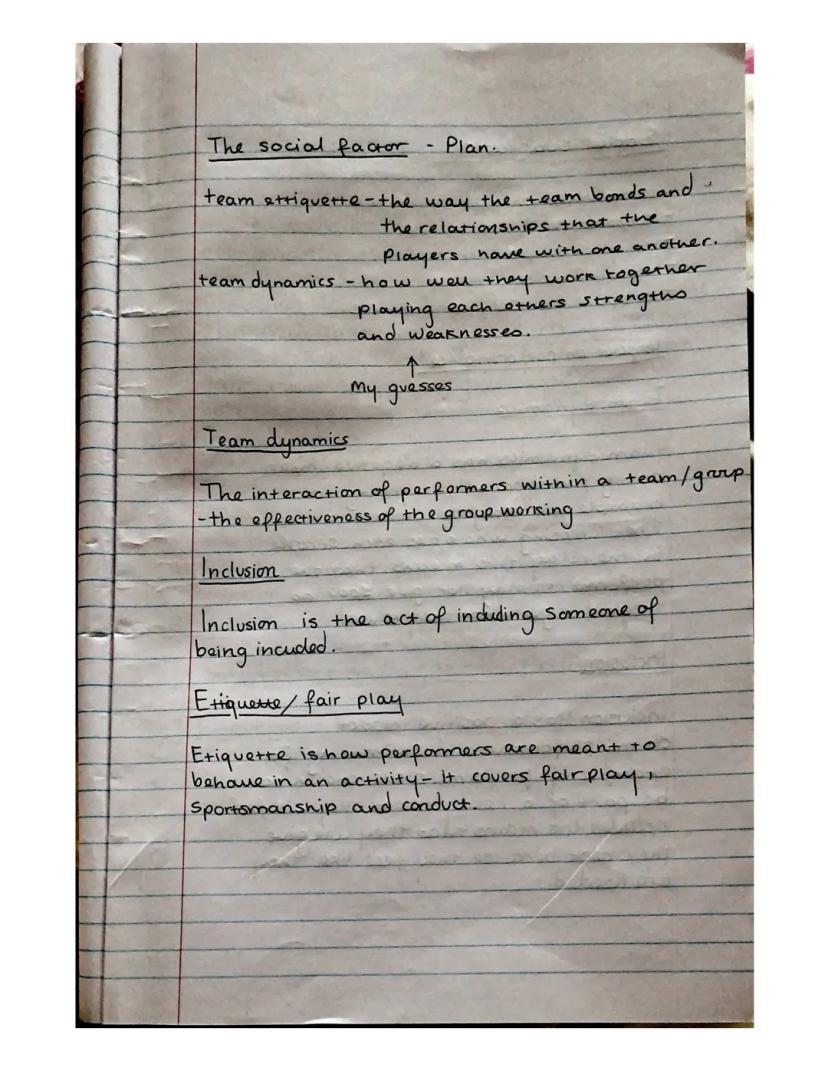 The social factor - Plan.
team ettiquette - the way the team bonds and
the relationships that the
players have with one another.
team dynamics - how well they work together
playing each others strengths
and weaknesses.
↑
My guesses
Team dynamics
The interaction of performers within a team/group
- the effectiveness of the group working
Inclusion
Inclusion is the act of including someone of
being incuded.
Etiquette/ fair play
Etiquette is how performers are meant to
behave in an activity - it covers fair play,
Sportsmanship and conduct.